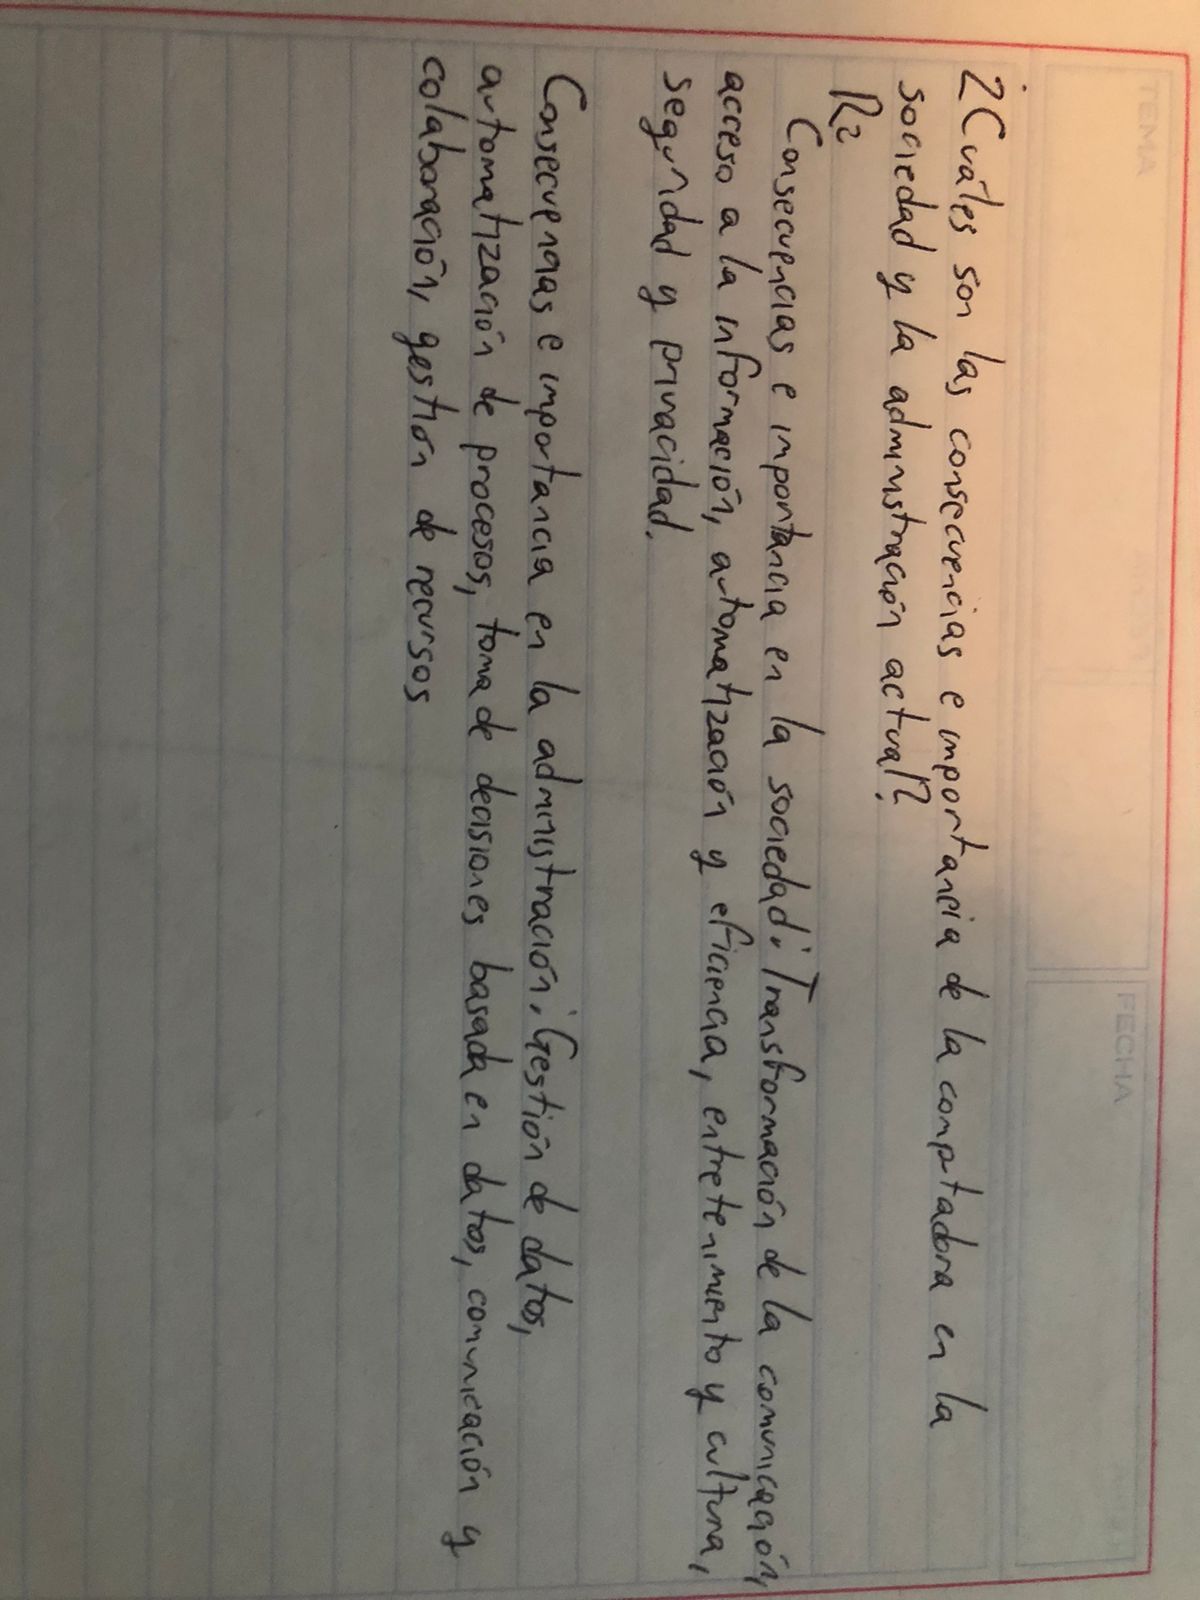 TEMA
FECHA
¿Cuáles son las consecuencias e importancia de la comptadora en la
sociedad y la administración actual?
R=
Consecuencias e importancia en la sociedad: Transformación de la comunicación,
acceso a la información, automatización y eficiencia, entretenimiento y cultura,
seguridad y privacidad.
Consecuencias e importancia en la administración: Gestión de datos,
automatización de procesos, toma de decisiones basada en datos, comunicación y
colaboración, gestión de recursos